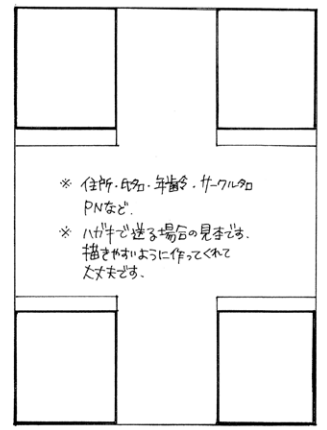 ※ 住所・氏名・年齢・サークル名
PNなど.
※ ハガキで送る場合の見本です.
描きやすいように作ってくれて
大丈夫です.